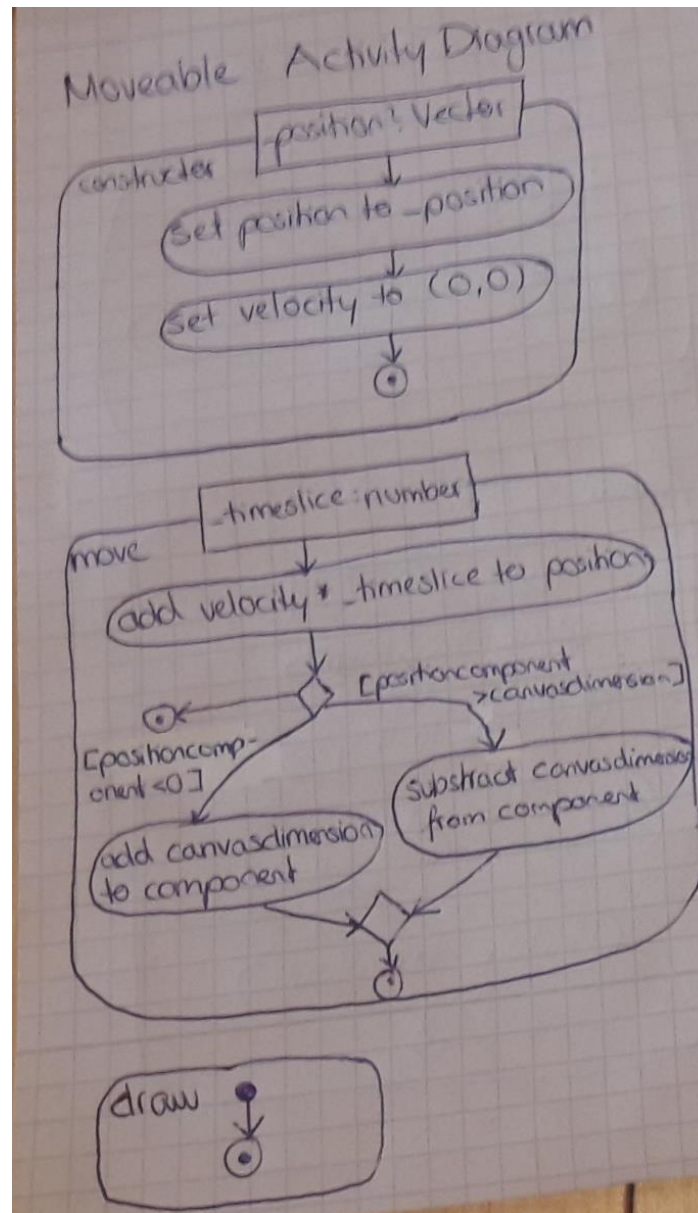 Moveable Activity Diagram
_position: Vector
constructer
set position to _position
set velocity to (0,0)
_timeslice: number
move
add velocity * _timeslice to position
[positioncomponent
>canvasdimension]
[positioncomp-
onent <0]
substract canvasdimension
from component
add canvasdimension
to component
draw